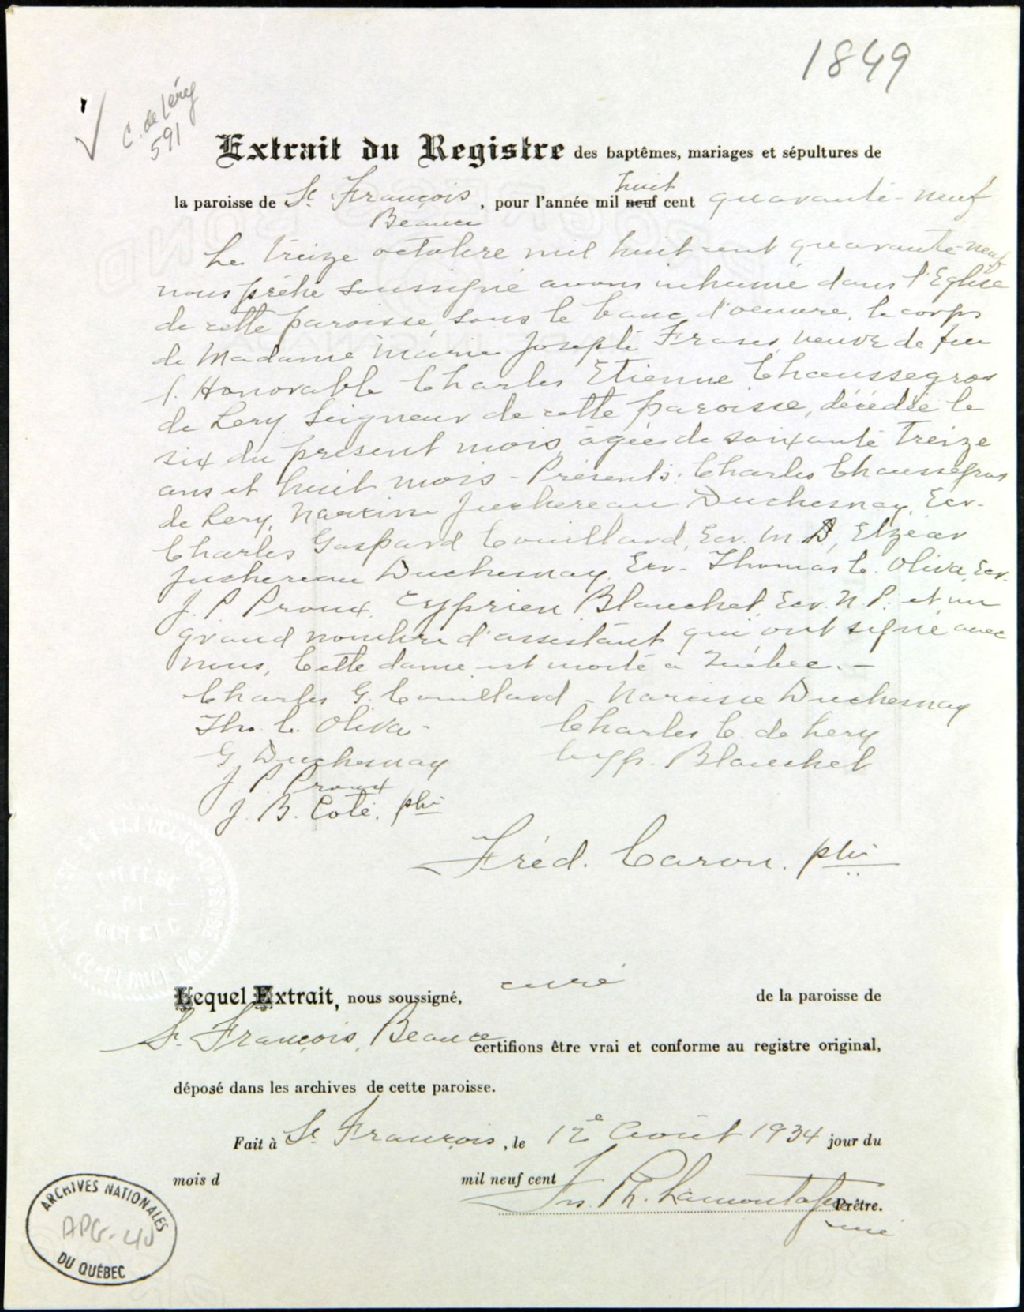 1849
C. de Léry
591
Extrait du Registre des baptêmes, mariages et sépultures de
la paroisse de St François Beauce, pour l'année mil huit neuf cent quarante-neuf
Le treize octobre mil huit cent quarante-neuf
nous prêtre soussigné avons inhumé dans l'Eglise
de cette paroisse sous le banc d'oeuvre, le corps
de Madame Marie Joseph Fraser veuve de feu
l'Honorable Charles Etienne Chaussegros
de Lery Seigneur de cette paroisse, décédée le
six du présent mois, âgée de soixante treize
ans et huit mois - Présents: Charles Chaussegros
de Lery, Narcisse Juchereau Duchesnay, Ecr.
Charles Gaspard Couillard, Ecr. M D, Elzéar
Juchereau Duchesnay, Ecr. Thomas C. Oliva, Ecr.
J. P. Proux, Cyprien Blanchet, Ecr. N. P. et un
grand nombre d'assistant qui ont signé avec
nous. Cette dame est morte à Québec. —
Charles G. Couillard - Narcisse Duchesnay
Tho. C. Oliva - Charles C. de Lery
G Duchesnay Cyp. Blanchet
J P. Proux
J. B. Coté. ptre
Fréd. Caron. ptre
Lequel Extrait, nous soussigné, curé de la paroisse de
St François, Beauce certifions être vrai et conforme au registre original,
déposé dans les archives de cette paroisse.
Fait à St François, le 12e Août 1934 jour du
mois d mil neuf cent
Jn. Ph. Lamontagne Prêtre.
curé
ARCHIVES NATIONALES
APG-40
DU QUÉBEC